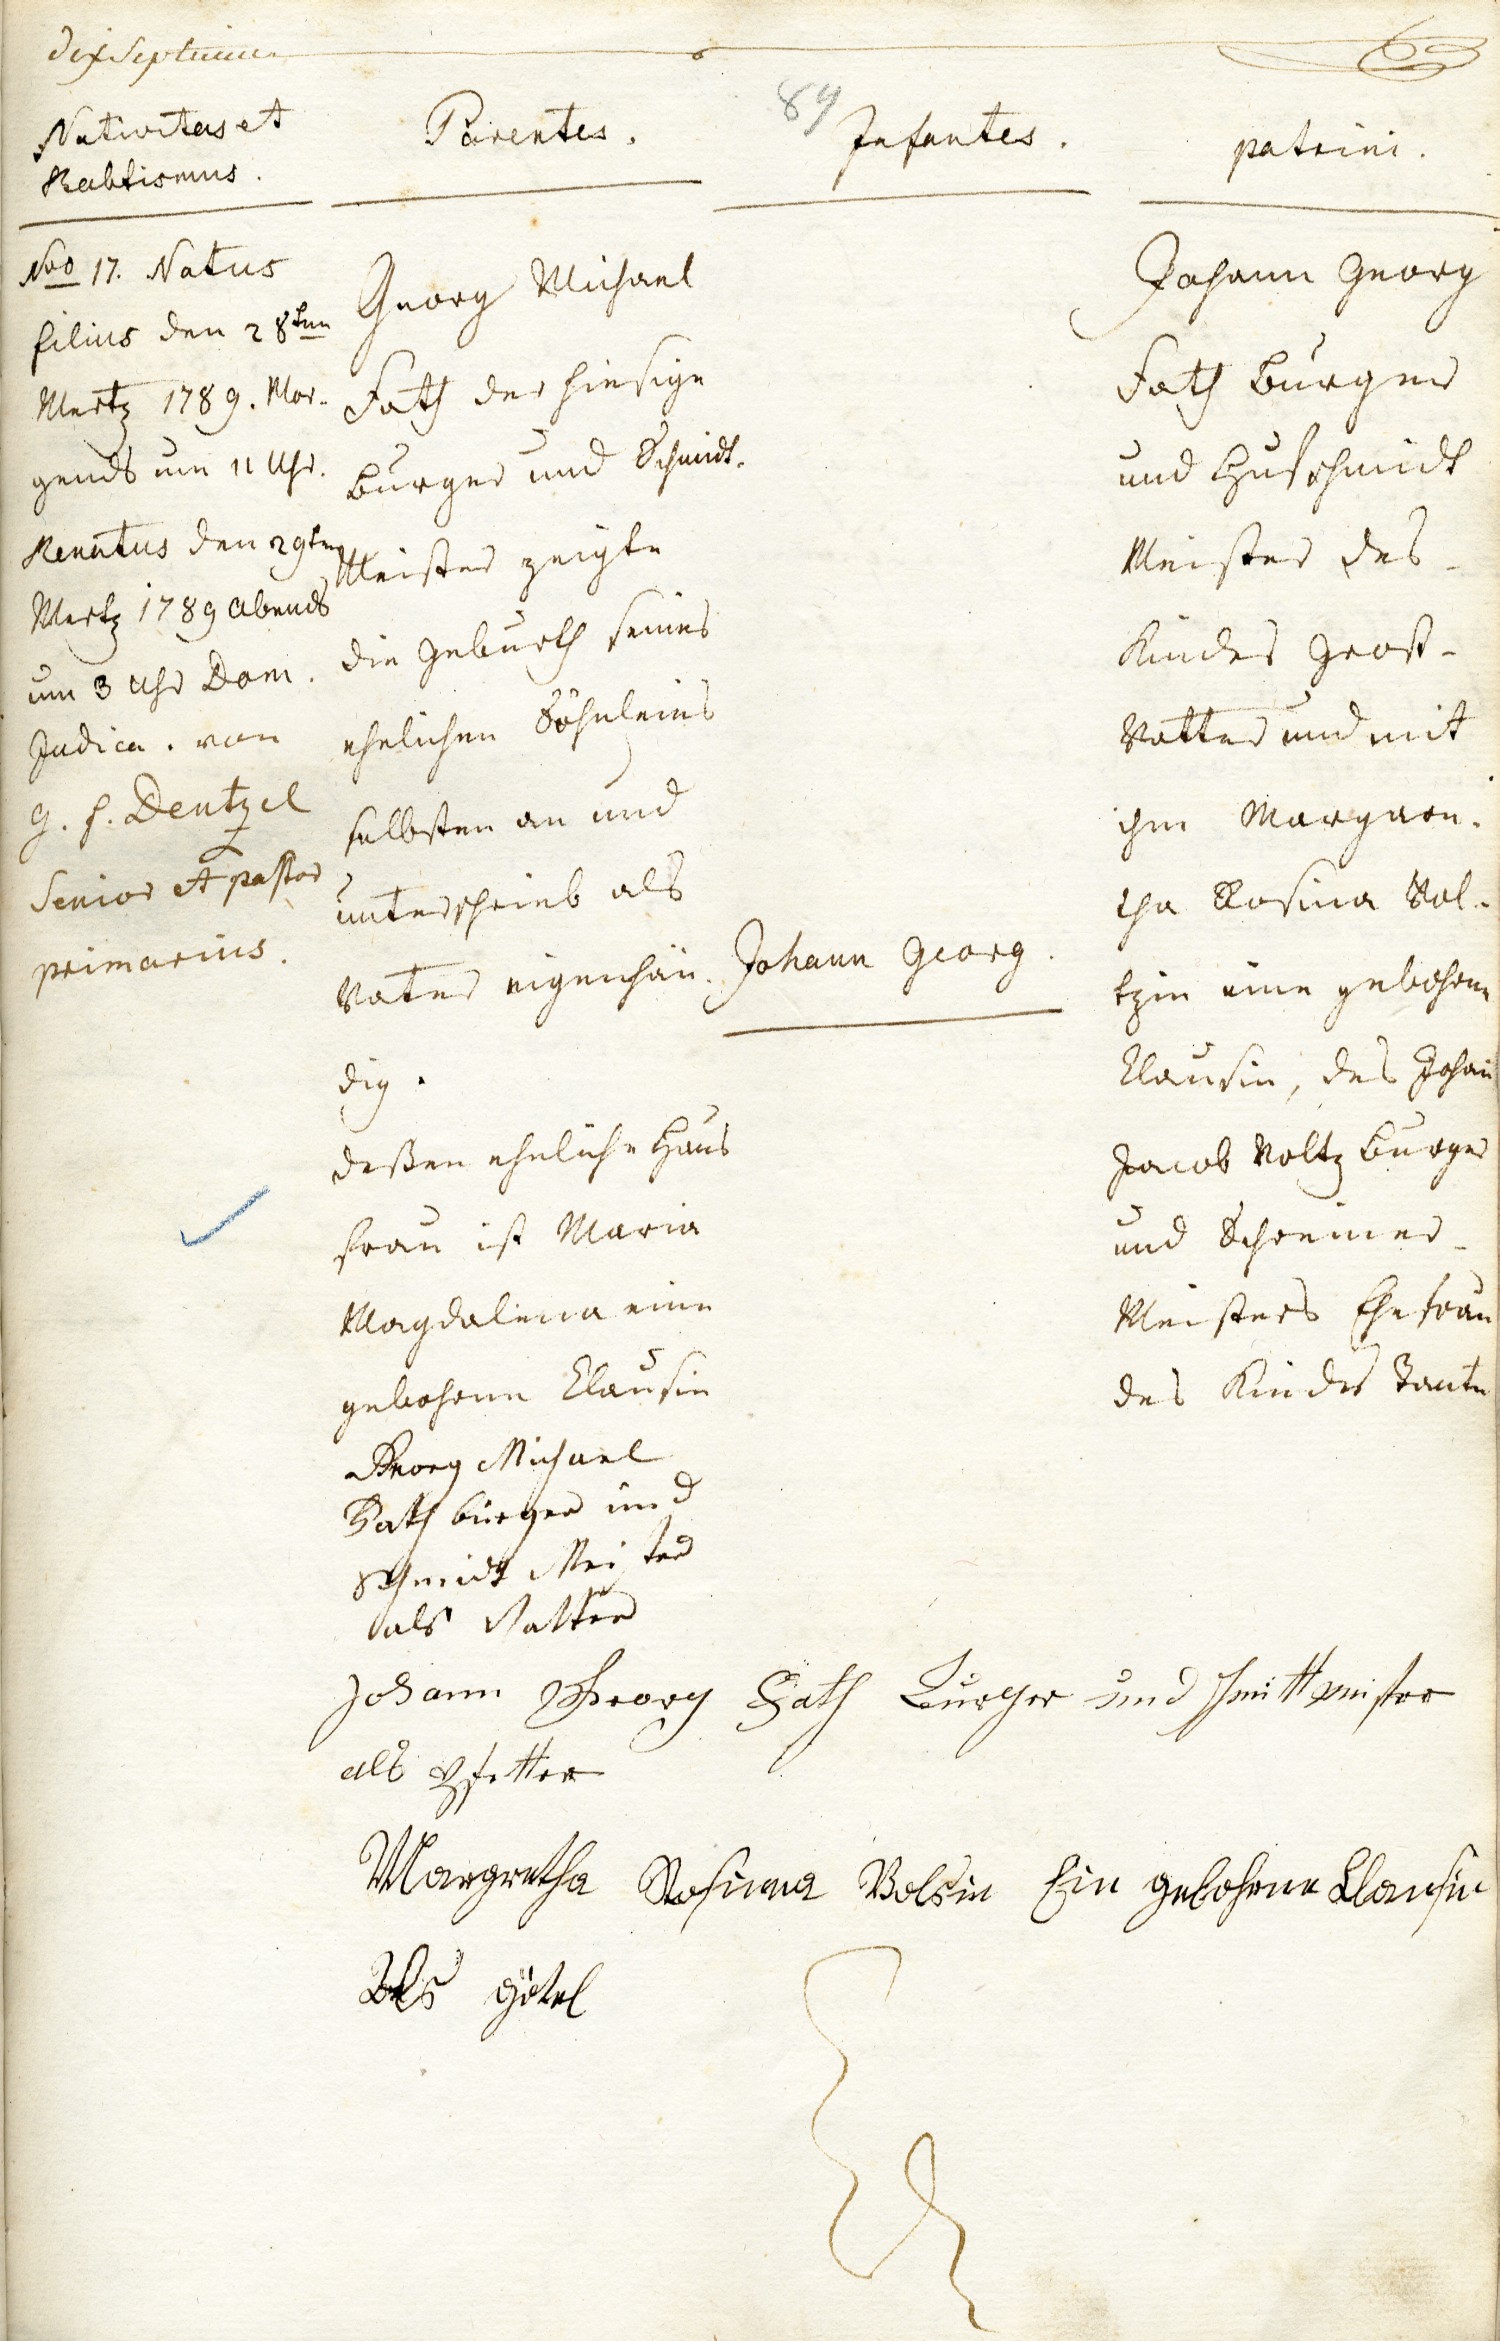 dixseptieme
84
Nativitas et
Babtismus.
Parentes.
Infantes.
patrini.
Nro 17. Natus
filius den 28ten
Mertz 1789. Mor-
gends um 11 Uhr.
Renatus den 29ten
Mertz 1789 Abends
um 3 Uhr Dom.
Judica. von
G. F. Dentzel
Senior et pastor
primarius.
Georg Michael
Fath der hiesige
Burger und Schmidt-
Meister zeigte
die Geburth seines
ehelichen Söhnleins
selbsten an und
unterschrieb als
Vater eigenhän-
dig.
deßen eheliche Haus
frau ist Maria
Magdalena eine
gebohrne Clausin
Georg Michael
Fath bürger und
schmidt Meister
als Vatter
Johann Georg.
Johann Georg
Fath Burger
und Hufschmidt
Meister des-
Kindes Groß-
Vatter und mit
ihm Margare-
tha Rosina Vol-
tzin eine gebohrne
Clausin, des Johan
Jacob Voltz Burger
und Schreiner-
Meisters Ehefrau
des Kindes Tante
Johann Georg Fath Burger und schmitt meister
als Pfetter
Margretha Rosina Volsin Ein gebohrne Clausin
Als götel